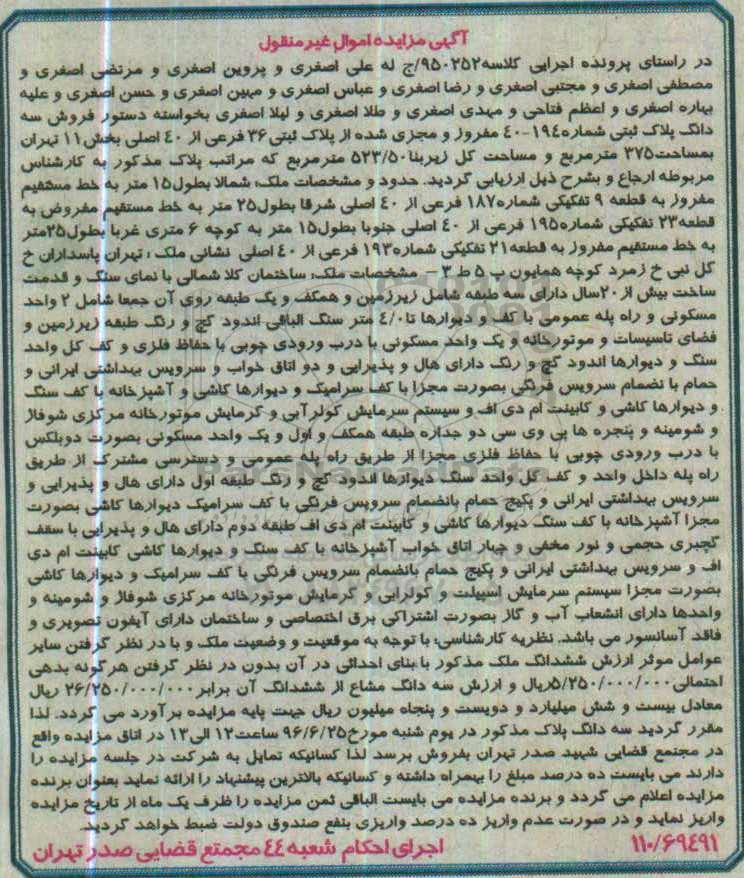 آگهی مزایده اموال غیر منقول
در راستای پرونده اجرایی کلاسه۹۵۰۲۵۲/ج له علی اصغری و پروین اصغری و مرتضی اصغری و
مصطفی اصغری و مجتبی اصغری و رضا اصغری و عباس اصغری و مهین اصغری و حسن اصغری و علیه
بهاره اصغری و اعظم فتاحی و مهدی اصغری و طلا اصغری و لیلا اصغری بخواسته دستور فروش سه
دانگ پلاک ثبتی شماره۱۹۴-۴۰ مفروز و مجزی شده از پلاک ثبتی ۳۶ فرعی از ۴۰ اصلی بخش۱۱ تهران
بمساحت۳۷۵ مترمربع و مساحت کل زیربنا۵۲۳/۵۰ مترمربع که مراتب پلاک مذکور به کارشناس
مربوطه ارجاع و بشرح ذیل ارزیابی گردید. حدود و مشخصات ملک: شمالا بطول۱۵ متر به خط مستقیم
مفروز به قطعه ۹ تفکیکی شماره۱۸۷ فرعی از ۴۰ اصلی شرقا بطول۲۵ متر به خط مستقیم مفروض به
قطعه۲۳ تفکیکی شماره۱۹۵ فرعی از ۴۰ اصلی جنوبا بطول۱۵ متر به کوچه ۶ متری غربا بطول۲۵متر
به خط مستقیم مفروز به قطعه۲۱ تفکیکی شماره۱۹۳ فرعی از ۴۰ اصلی نشانی ملک : تهران پاسداران خ
گل نبی خ زمرد کوچه همایون پ ۵ ط ۳ - مشخصات ملک: ساختمان کلا شمالی با نمای سنگ و قدمت
ساخت بیش از۲۰سال دارای سه طبقه شامل زیرزمین و همکف و یک طبقه روی آن جمعا شامل ۲ واحد
مسکونی و راه پله عمومی با کف و دیوارها تا۴/۰ متر سنگ الباقی اندود گچ و رنگ طبقه زیرزمین و
فضای تاسیسات و موتورخانه و یک واحد مسکونی با درب ورودی چوبی با حفاظ فلزی و کف کل واحد
سنگ و دیوارها اندود گچ و رنگ دارای هال و پذیرایی و دو اتاق خواب و سرویس بهداشتی ایرانی و
حمام با نضمام سرویس فرنگی بصورت مجزا با کف سرامیک و دیوارها کاشی و آشپزخانه با کف سنگ
و دیوارها کاشی و کابینت ام دی اف و سیستم سرمایش کولرآبی و گرمایش موتورخانه مرکزی شوفاژ
و شومینه و پنجره ها پی وی سی دو جداره طبقه همکف و اول و یک واحد مسکونی بصورت دوبلکس
با درب ورودی چوبی با حفاظ فلزی مجزا از طریق راه پله عمومی و دسترسی مشترک از طریق
راه پله داخل واحد و کف کل واحد سنگ دیوارها اندود گچ و رنگ طبقه اول دارای هال و پذیرایی و
سرویس بهداشتی ایرانی و پکیج حمام بانضمام سرویس فرنگی با کف سرامیک دیوارها کاشی بصورت
مجزا آشپزخانه با کف سنگ دیوارها کاشی و کابینت ام دی اف طبقه دوم دارای هال و پذیرایی با سقف
گچبری حجمی و نور مخفی و چهار اتاق خواب آشپزخانه با کف سنگ و دیوارها کاشی کابینت ام دی
اف و سرویس بهداشتی ایرانی و پکیج حمام بانضمام سرویس فرنگی با کف سرامیک و دیوارها کاشی
بصورت مجزا سیستم سرمایش اسپیلت و کولرابی و گرمایش موتورخانه مرکزی شوفاژ و شومینه و
واحدها دارای انشعاب آب و گاز بصورت اشتراکی برق اختصاصی و ساختمان دارای آیفون تصویری و
فاقد آسانسور می باشد. نظریه کارشناسی: با توجه به موقعیت و وضعیت ملک و با در نظر گرفتن سایر
عوامل موثر ارزش ششدانگ ملک مذکور با بنای احداثی در آن بدون در نظر گرفتن هرگونه بدهی
احتمالی۵/۲۵۰/۰۰۰/۰۰۰ریال و ارزش سه دانگ مشاع از ششدانگ آن برابر۲۶/۲۵۰/۰۰۰/۰۰۰ ریال
معادل بیست و شش میلیارد و دویست و پنجاه میلیون ریال جهت پایه مزایده برآورد می گردد. لذا
مقرر گردید سه دانگ پلاک مذکور در یوم شنبه مورخ۹۶/۶/۲۵ ساعت۱۲ الی۱۳ در اتاق مزایده واقع
در مجتمع قضایی شهید صدر تهران بفروش برسد لذا کسانیکه تمایل به شرکت در جلسه مزایده را
دارند می بایست ده درصد مبلغ را بهمراه داشته و کسانیکه بالاترین پیشنهاد را ارائه نماید بعنوان برنده
مزایده اعلام می گردد و برنده مزایده می بایست الباقی ثمن مزایده را ظرف یک ماه از تاریخ مزایده
واریز نماید و در صورت عدم واریز ده درصد واریزی بنفع صندوق دولت ضبط خواهد گردید.
۱۱۰/۶۹۴۹۱ اجرای احکام شعبه ۴۴ مجمتع قضایی صدر تهران
ParsNamadData